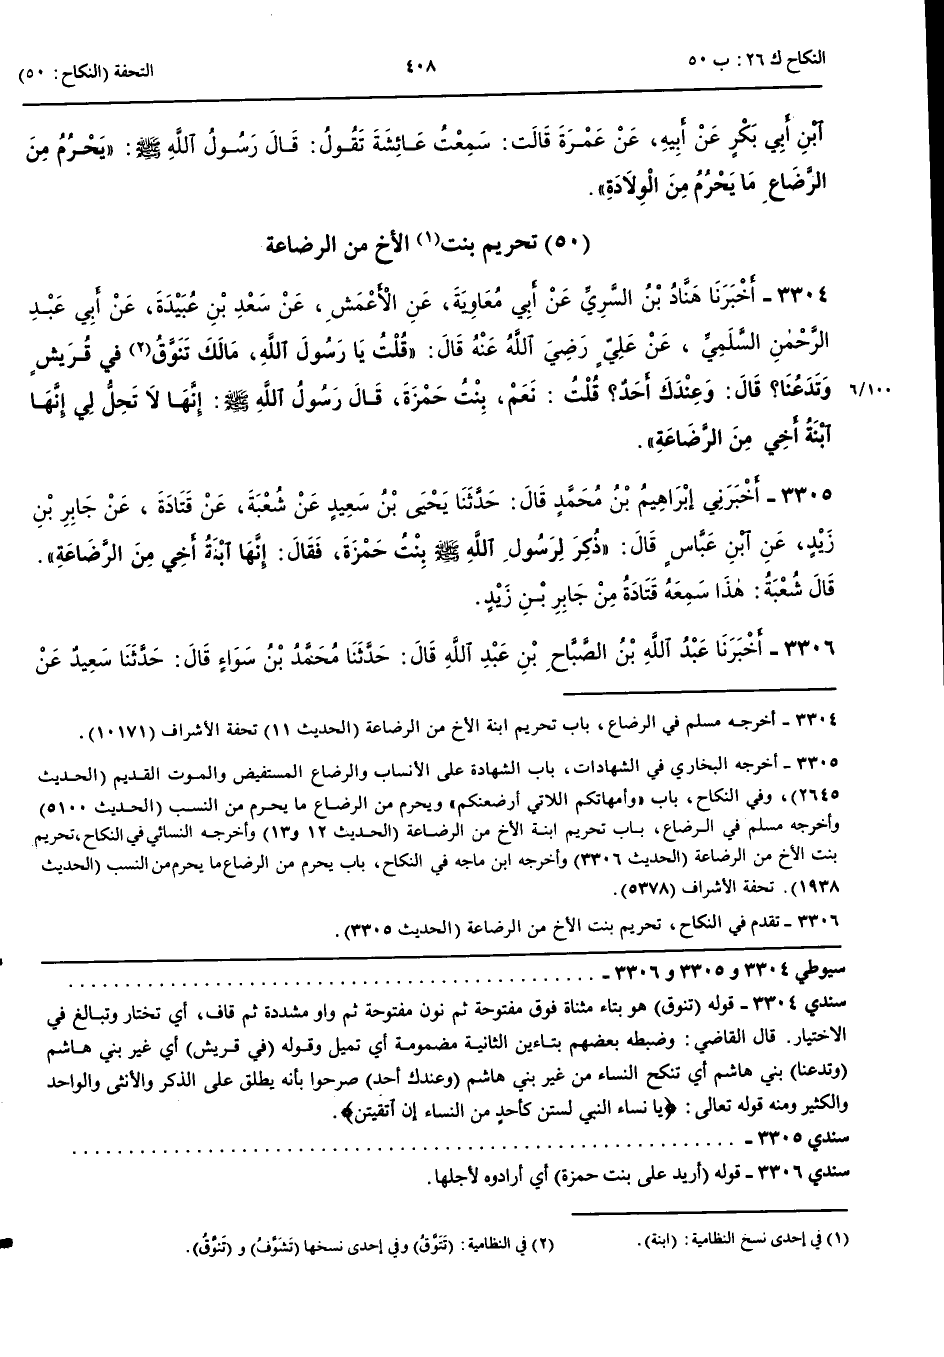 النكاح ك ٢٦: ب ٥٠
٤٠٨
التحفة (النكاح: ٥٠)
ٱبْنِ أَبِي بَكْرٍ عَنْ أَبِيهِ، عَنْ عَمْرَةَ قَالَت: سَمِعْتُ عَائِشَةَ تَقُولُ: قَالَ رَسُولُ ٱللَّهِ ﷺ: «يَحْرُمُ مِنَ
الرَّضَاعِ مَا يَحْرُمُ مِنَ الْوِلاَدَةِ».
(٥٠) تحريم بنت(١) الأخ من الرضاعة
٣٣٠٤ - أَخْبَرَنَا هَنَّادُ بْنُ السَّرِيِّ عَنْ أَبِي مُعَاوِيَةَ، عَنِ الْأَعْمَشِ، عَنْ سَعْدِ بْنِ عُبَيْدَةَ، عَنْ أَبِي عَبْدِ
الرَّحْمٰنِ السُّلَمِيِّ، عَنْ عَلِيٍّ رَضِيَ ٱللَّهُ عَنْهُ قَالَ: «قُلْتُ يَا رَسُولَ ٱللَّهِ، مَالَكَ تَنَوَّقُ(٢) في قُرَيْشٍ
وَتَدَعُنَا؟ قَالَ: وَعِنْدَكَ أَحَدٌ؟ قُلْتُ: نَعَمْ، بِنْتُ حَمْزَةَ، قَالَ رَسُولُ ٱللَّهِ ﷺ: إِنَّهَا لاَ تَحِلُّ لِي إِنَّهَا
٦/١٠٠
ٱبْنَةُ أَخِي مِنَ الرَّضَاعَةِ».
٣٣٠٥ - أَخْبَرَنِي إِبْرَاهِيمُ بْنُ مُحَمَّدٍ قَالَ: حَدَّثَنَا يَحْيَى بْنُ سَعِيدٍ عَنْ شُعْبَةَ، عَنْ قَتَادَةَ، عَنْ جَابِرِ بْنِ
زَيْدٍ، عَنِ ٱبْنِ عَبَّاسٍ قَالَ: «ذُكِرَ لِرَسُولِ ٱللَّهِ ﷺ بِنْتُ حَمْزَةَ، فَقَالَ: إِنَّهَا ٱبْنَةُ أَخِي مِنَ الرَّضَاعَةِ».
قَالَ شُعْبَةُ: هٰذَا سَمِعَهُ قَتَادَةُ مِنْ جَابِرِ بْنِ زَيْدٍ.
٣٣٠٦ - أَخْبَرَنَا عَبْدُ ٱللَّهِ بْنُ الصَّبَّاحِ بْنِ عَبْدِ ٱللَّهِ قَالَ: حَدَّثَنَا مُحَمَّدُ بْنُ سَوَاءٍ قَالَ: حَدَّثَنَا سَعِيدٌ عَنْ
٣٣٠٤ - أخرجه مسلم في الرضاع، باب تحريم ابنة الأخ من الرضاعة (الحديث ١١) تحفة الأشراف (١٠١٧١).
٣٣٠٥ - أخرجه البخاري في الشهادات، باب الشهادة على الأنساب والرضاع المستفيض والموت القديم (الحديث
٢٦٤٥)، وفي النكاح، باب «وأمهاتكم اللاتي أرضعنكم» ويحرم من الرضاع ما يحرم من النسب (الحديث ٥١٠٠)
وأخرجه مسلم في الرضاع، باب تحريم ابنة الأخ من الرضاعة (الحديث ١٢ و١٣) وأخرجه النسائي في النكاح، تحريم
بنت الأخ من الرضاعة (الحديث ٣٣٠٦) وأخرجه ابن ماجه في النكاح، باب يحرم من الرضاع ما يحرم من النسب (الحديث
١٩٣٨). تحفة الأشراف (٥٣٧٨).
٣٣٠٦ - تقدم في النكاح، تحريم بنت الأخ من الرضاعة (الحديث ٣٣٠٥).
سيوطي ٣٣٠٤ و ٣٣٠٥ و ٣٣٠٦ - ........................................
سندي ٣٣٠٤ - قوله (تنوق) هو بتاء مثناة فوق مفتوحة ثم نون مفتوحة ثم واو مشددة ثم قاف، أي تختار وتبالغ في
الاختيار. قال القاضي: وضبطه بعضهم بتاءين الثانية مضمومة أي تميل وقوله (في قريش) أي غير بني هاشم
(وتدعنا) بني هاشم أي تنكح النساء من غير بني هاشم (وعندك أحد) صرحوا بأنه يطلق على الذكر والأنثى والواحد
والكثير ومنه قوله تعالى: ﴿يا نساء النبي لستن كأحدٍ من النساء إن ٱتقيتن﴾.
سندي ٣٣٠٥ - ..................................................
سندي ٣٣٠٦ - قوله (أريد على بنت حمزة) أي أرادوه لأجلها.
(١) في إحدى نسخ النظامية: (ابنة).
(٢) في النظامية: (تَتَوَّقُ) وفي إحدى نسخها (تَشَوَّفُ) و (تَنَوَّقُ).